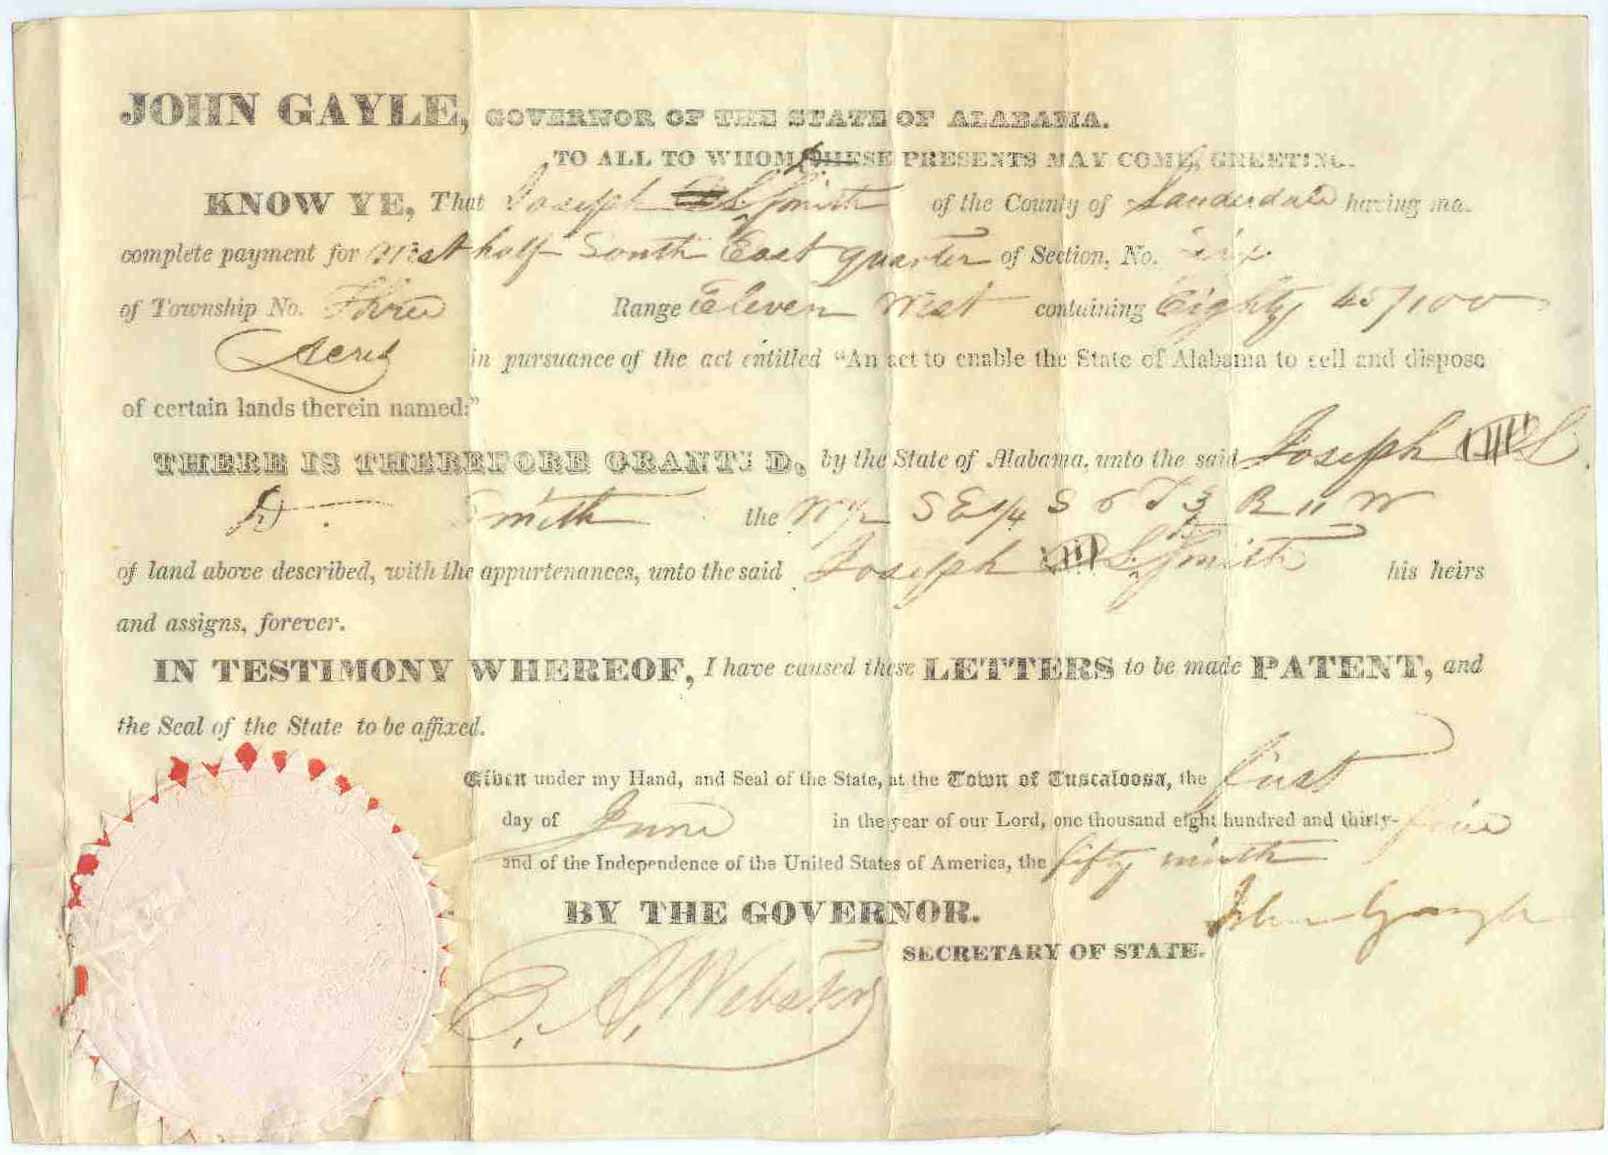 JOHN GAYLE, GOVERNOR OF THE STATE OF ALABAMA.
TO ALL TO WHOM THESE PRESENTS MAY COME, GREETING.
KNOW YE, That Joseph L. Smith of the County of Lauderdale having ma
complete payment for West half South East quarter of Section, No. Six
of Township No. Three Range Eleven West containing Eighty 45/100
Acres in pursuance of the act entitled "An act to enable the State of Alabama to sell and dispose
of certain lands therein named:"
THERE IS THEREFORE GRANTED, by the State of Alabama, unto the said Joseph L.
Smith the W 1/2 S E 1/4 S 6 T 3 R 11 W
of land above described, with the appurtenances, unto the said Joseph L. Smith his heirs
and assigns, forever.
IN TESTIMONY WHEREOF, I have caused these LETTERS to be made PATENT, and
the Seal of the State to be affixed.
Given under my Hand, and Seal of the State, at the Town of Tuscaloosa, the first
day of June in the year of our Lord, one thousand eight hundred and thirty-five
and of the Independence of the United States of America, the fifty ninth
BY THE GOVERNOR. John Gayle
SECRETARY OF STATE.
E. A. Webster